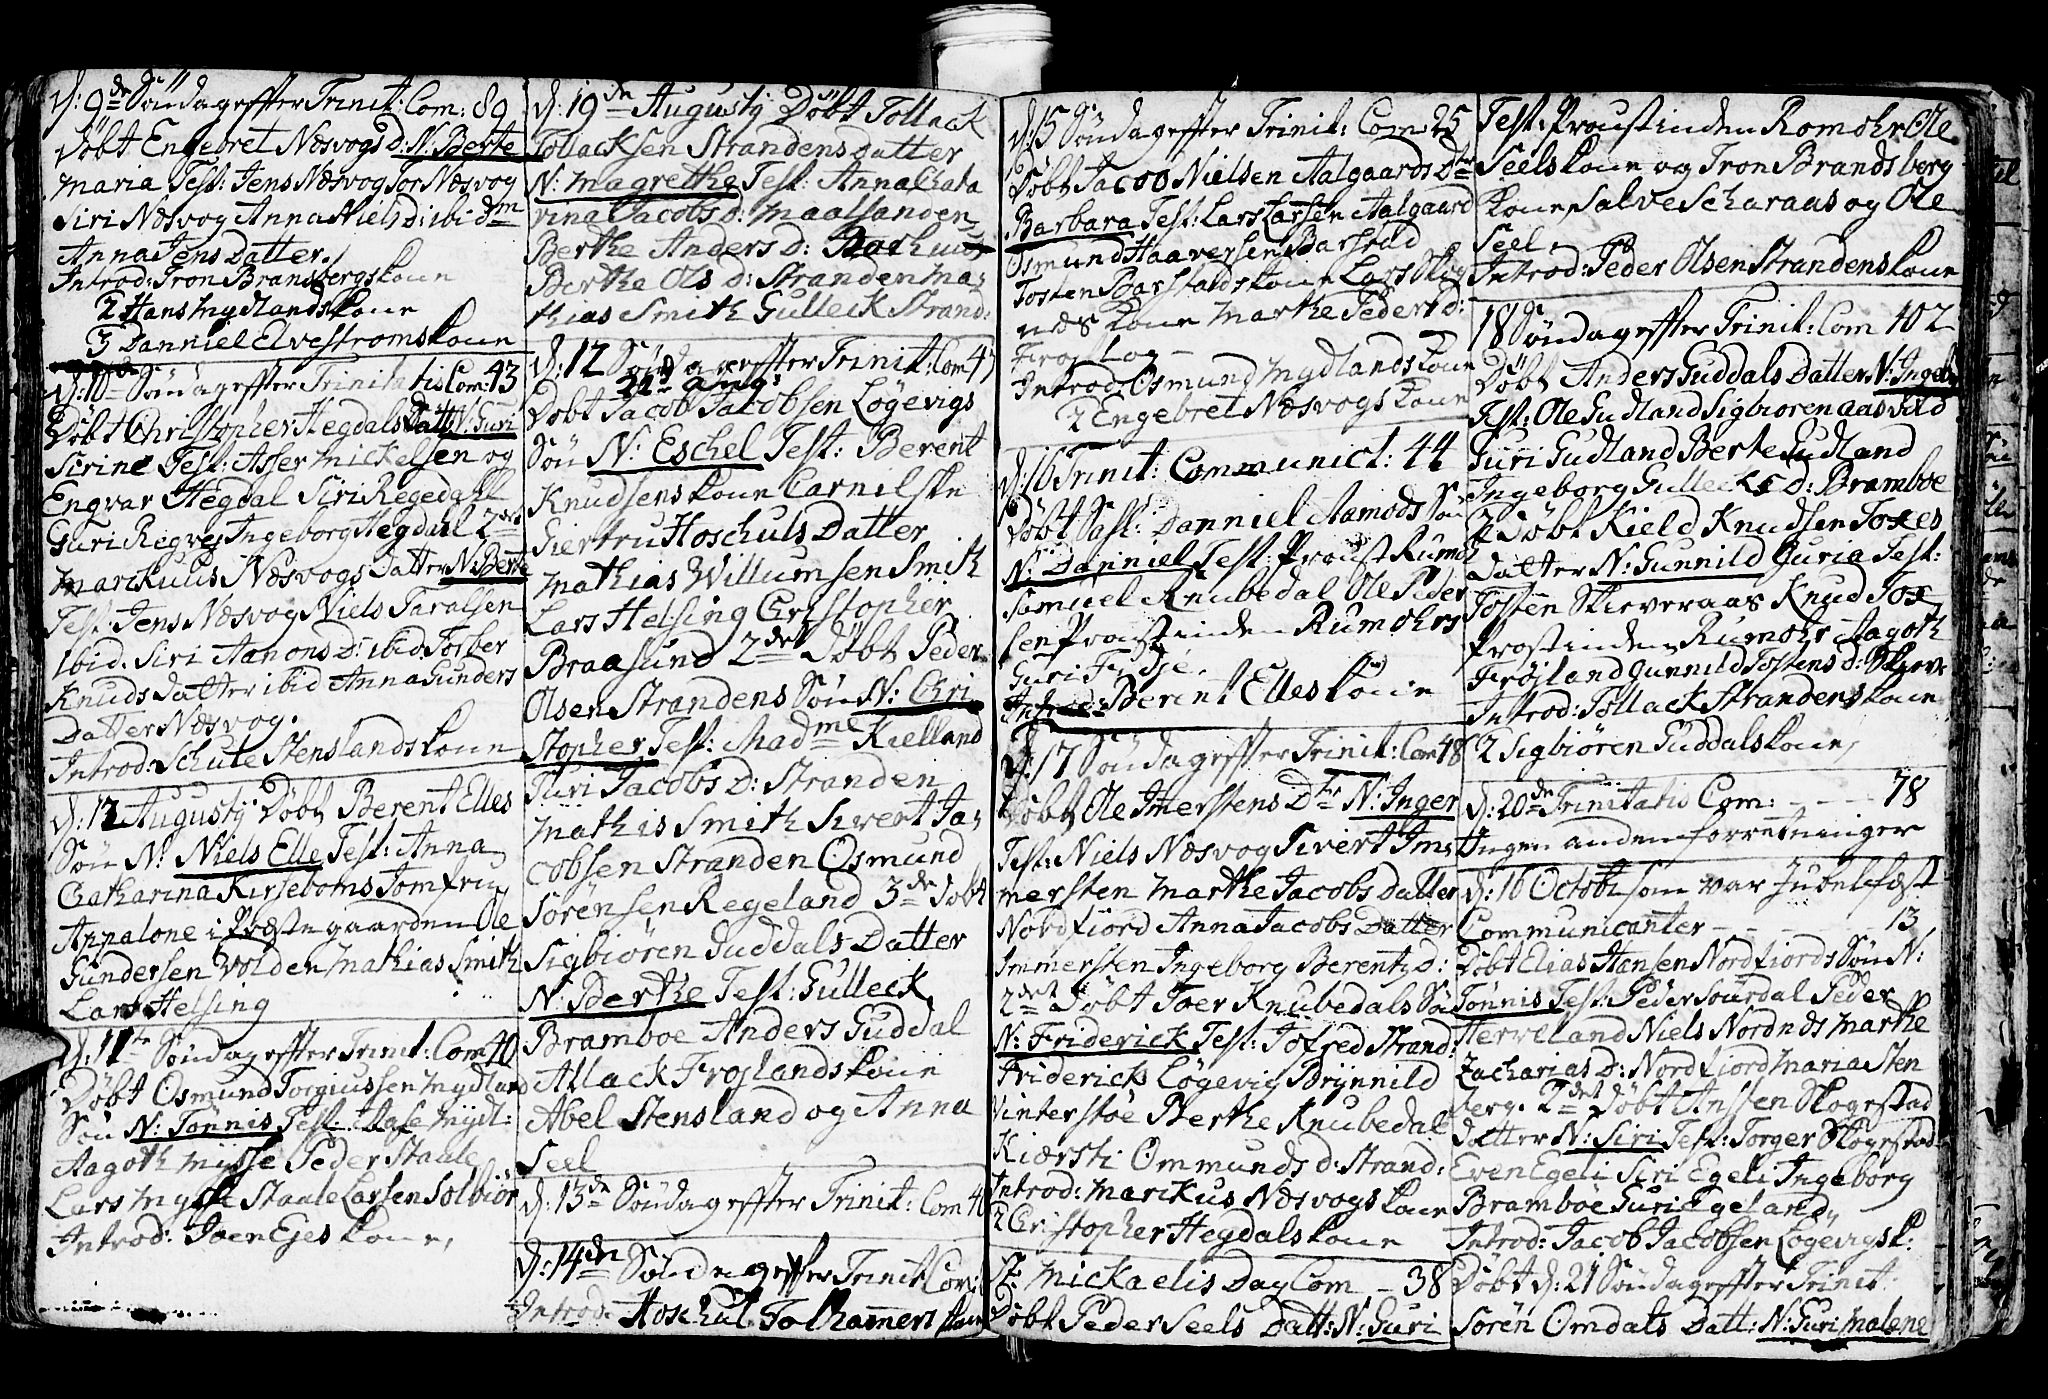 d: 9de Söndag effter Trinit: Com: 89
Döbt Engebret Næsvogs D: N: Berte
Maria Test: Jens Næsvog Tor Næsvog
Siri Næsvog Anna Niels D: ibidm
Anna Jens Datter.
Introd: Tron Bransbergs kone
2 Hans Mydlands kone
3 Danniel Elvestroms kone
d: 10de Söndag effter Trinitatis Com: 43
Döbt Christopher Hegdals Datt N: Guri
Sirine Test: Asser Mickelsen og
Engvar Hegdal Siri Regedahl
Guri Regvej Ingeborg Hegdal 2det
Marckuus Næsvogs Datter N: Berte
Test: Jens Næsvog Niels Taralsen
Ibid. Siri Aanons D: ibid Tosber
Knuds datter ibid Anna Gunders
Datter Næsvog.
Introd: Schute Stenslands kone
d: 12 Augustij Döbt Berent Elles
Sön N: Niels Elle Test: Anna
Catharina Kirseboms Jomfru
Appalone i Præstegaarden Ole
Gundersen Wolden Mathias Smith
Lars Helsing
d: 11te Söndag effter Trinit: Com 40
Döbt Osmund Torgiussen Mydland
Sön N: Tönnis Test Aase Mydl:
Aagoth Mysse Peder Staale
Lars Mysse Staale Larsen Solbiör
Introd: Joen Ejes kone,
d: 19de Augustij Döbt Tollack
Tollacksen Strandens Datter
N: Magrethe Test: Anna Chata
vina Jacobs D: Maalsanden
Berthe Anders D: Barhuus
Berthe Ols D: Stranden Ma,
thias Smith Gulleck Strand:
d: 12 Söndag effter Trinit: Com 47
21d Aug:
Döbt Jacob Jacobsen Lögevigs
Sön N: Eschel Test: Berent
Knudsens kone Carnelske
Giertru Hoschuls Datter
Mathias Willumsen Smith
Lars Helsing Christopher
Braasund 2det Döbt Peder
Olsen Strandens Sön N: Chri
stopher Test: Madme Kielland
Turi Jacobs D: Stranden
Mathis Smith Sivert Ja,
cobsen Stranden Osmund
Sörensen Regeland 3de Döbt
Sigbiören Guddals Datter
N: Berthe Test: Gulleck
Bramboe Anders Guddal
Atlack Frojlands kone
Abel Stensland og Anna
Seel
d: 13de Söndag effter Trinit: Com 40
d: 14de Söndag effter Trinit Com:
Introd: Hoschul Tolhammers kone
d: 15 Söndag effter Trinit: Com 25
Döbt Jacob Nielsen Aalgaards Dtr
Barbara Test: Lars Larsen Aalgaard
Osmund Haaversen Barstad
Tosten Barstads kone Lars Skog
næs kone Marthe Peders D:
Frostog
Introd: Osmund Mydlands kone
2 Engebret Næsvogs kone
d: 16 Trinit: Communict: 44
Döbt Sast: Danniel Aamods Sön
N: Danniel Test: Proust Rumoh
Samuel Knubedal Ole Peder
sen Proustinden Rumohrs
Guri Fidje.
Introd: Berent Elles kone
d: 17 Söndag effter Trinit: Com 48
Döbt Ole Imerstens Dtr N: Inger
Test: Niels Næsvog Sivert Im,
mersten Marthe Jacobs datter
Nordfiord Anna Jacobs Datter
Immersten Ingeborg Berents D:
2det Döbt Joer Knubedals Sön
N: Friderick Test: Jofred Strand:
Friderick Lögevig Brynnild
Vinterstöe Berthe Knubedal
Kiersti Ommunds d: Strand:
Introd: Marckus Næsvogs kone
2 Christopher Hegdals kone
St: Mickaelis Dag Com - 38
Döbt Peder Seels Datt: N: Guri
Test: Proustinden Romohr Ole
Seels kone og Tron Brandsberg
kone Salve Scharaas og Ole
Seel.
Introd: Peder Olsen Strandens kone
18 Söndag effter Trinit: Com 102
Döbt Anders Guddals Datter N: Ingeb
Test: Ole Gudland Sigbiören Aasvold
Guri Gudland Berte Gudland
Ingeborg Gullecks D: Bramboe
2 Döbt Kield Knudsen Toxes
Datter N: Gunnild Guria Test:
Tosten Skieveraas Knud Tox
Prostinden Rumohr Aagoth
Fröjland Gunnild Tostens d: Skieve
Introd: Tollack Strandens kone
2 Sigbiören Guddals kone,
d: 20de Trinitatis Com: - - - 78
Ingen anden forretninger
d: 16 Octobr som var Jubelfæst
Communicanter - - - 13
Döbt Elias Hansen Nordfiords Sön N:
Tönnis Test: Peder Sourdal Peder
Herveland Niels Nordnds Marthe
Zacharias D: Nordfiord Maria Sten
berg. 2det Döbt Ansten Skogestad
datter N: Siri Test: Torger Skogestad:
Even Egeli Siri Egeli Ingeborg
Bramboe Guri Egeland,
Introd: Jacob Jacobsen Lögevigs k:
Döbt d: 21 Söndag effter Trinit:
Sören Omdals Datt: N: Guri Malene